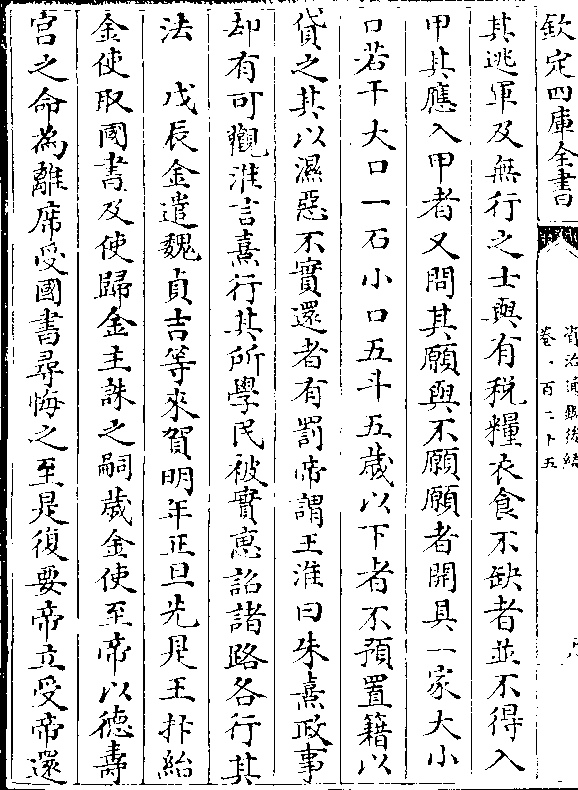 欽定四庫全書
資治通鑑後編
卷一百二十五
其逃軍及無行之士與有税糧衣食不缺者並不得入
甲其應入甲者又問其願與不願願者開具一家大小
口若干大口一石小口五斗五歲以下者不預置籍以
貸之其以濕惡不實還者有罰帝謂王淮曰朱熹政事
却有可觀淮言熹行其所學民被實惠詔諸路各行其
法　戊辰金遣魏貞吉等來賀明年正旦先是王抃紿
金使取國書及使歸金主誅之嗣歲金使至帝以德壽
宫之命為離席受國書尋悔之至是復要帝立受帝還